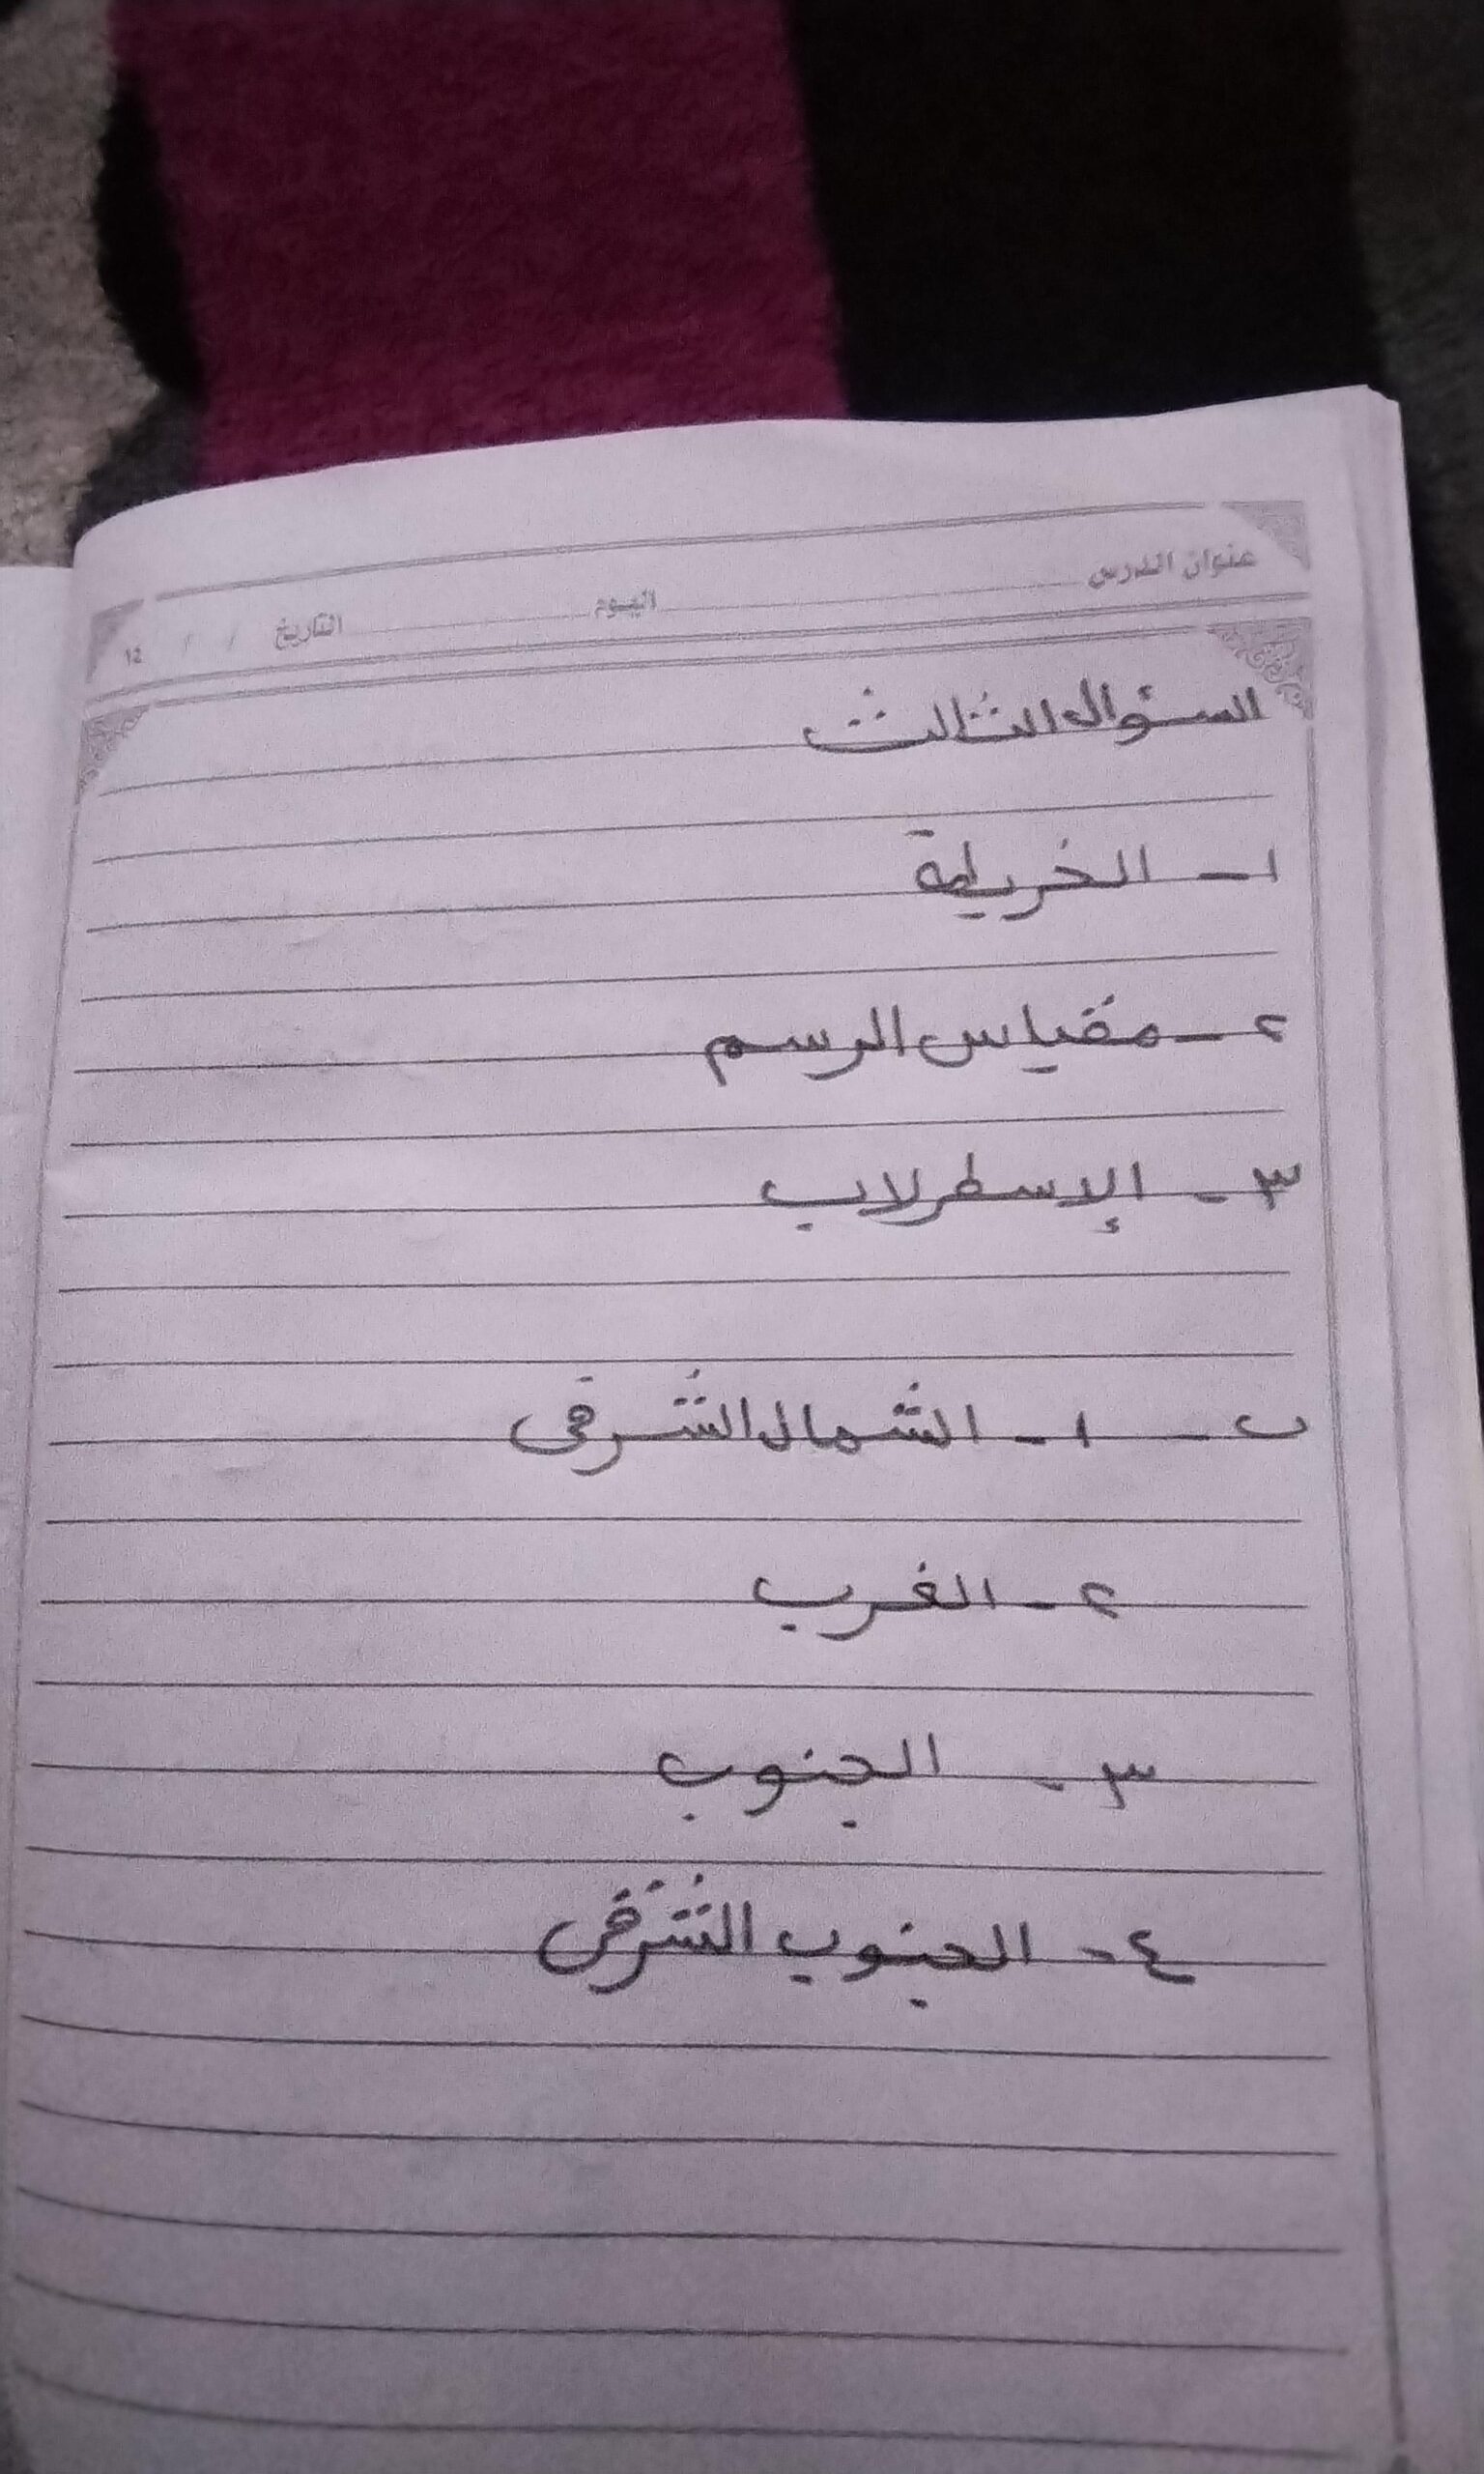 عنوان الدرس اليوم التاريخ / / 12
السؤال الثالث
١- الخريطة
٢- مقياس الرسم
٣- الإسطرلاب
ب- ١- الشمال الشرقى
٢- الغرب
٣- الجنوب
٤- الجنوب الشرقى